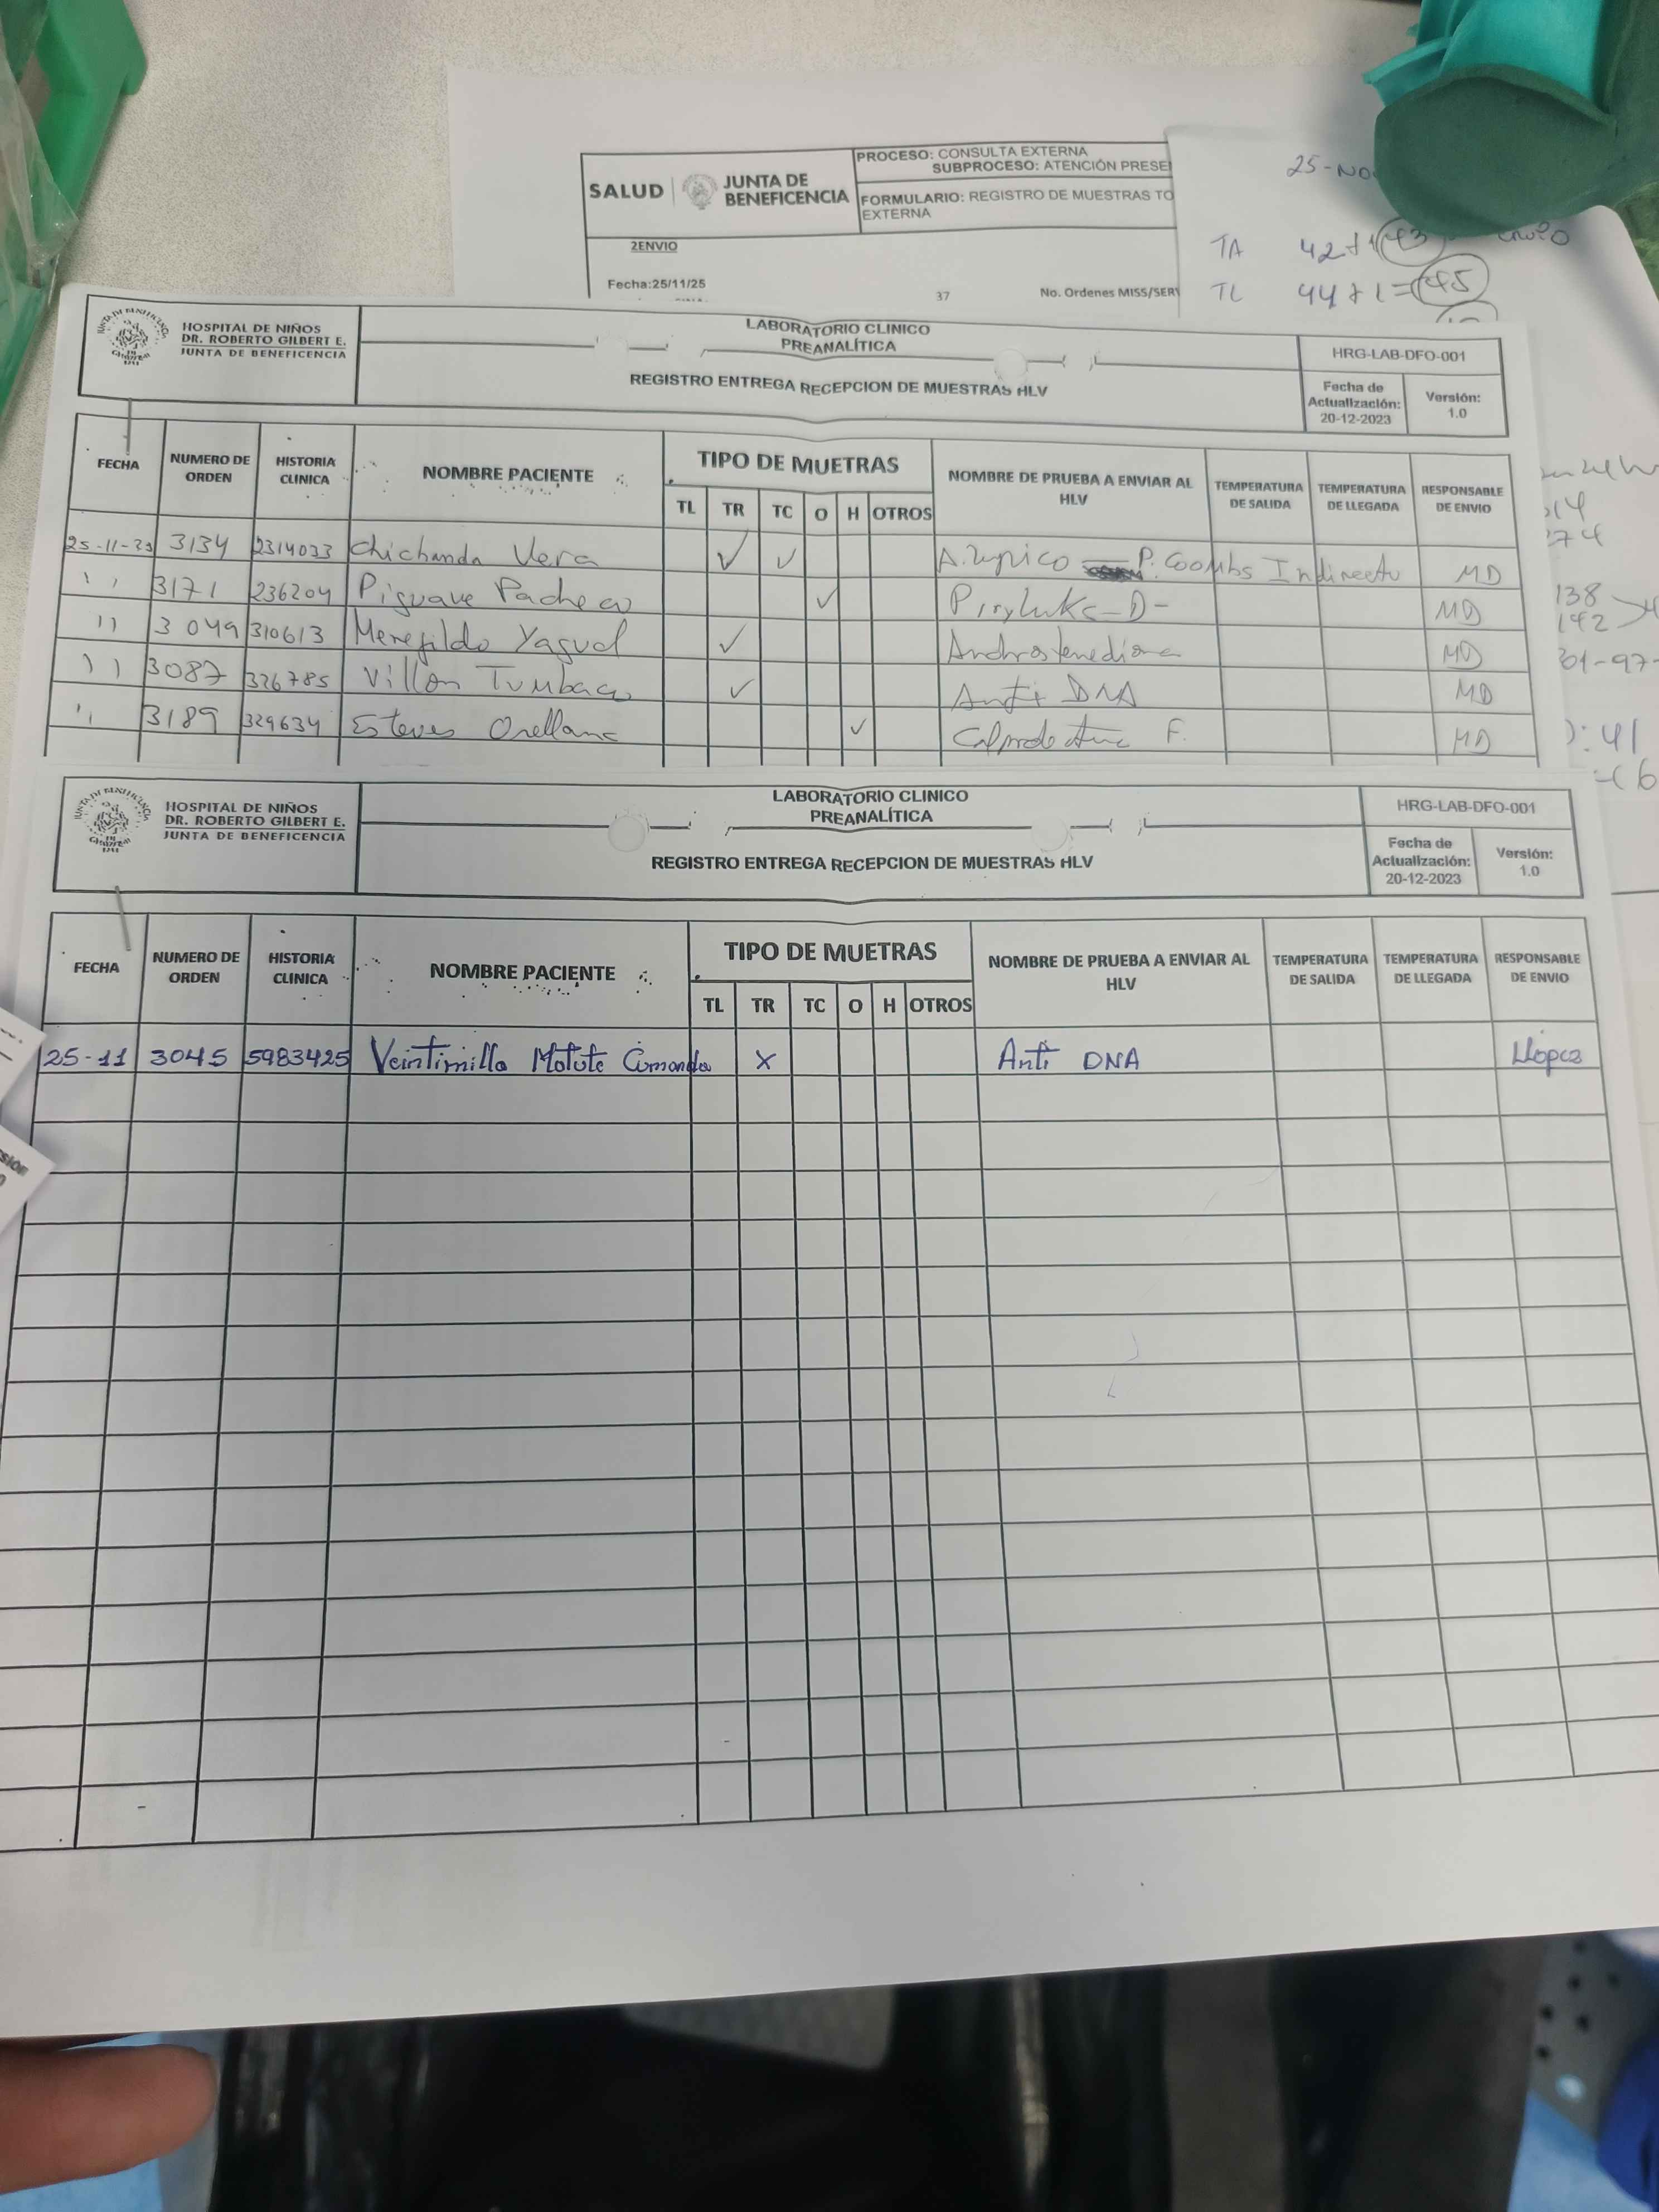 PROCESO: CONSULTA EXTERNA
SUBPROCESO: ATENCIÓN
SALUD JUNTA DE BENEFICENCIA
FORMULARIO: REGISTRO DE MUESTRAS
EXTERNA
2ENVIO
Fecha:25/11/25 37 No. Ordenes
TA 42+1
TL 44+1=45
HOSPITAL DE NIÑOS
DR. ROBERTO GILBERT E.
JUNTA DE BENEFICENCIA
LABORATORIO CLINICO
PREANALÍTICA
REGISTRO ENTREGA RECEPCION DE MUESTRAS HLV
HRG-LAB-DFO-001
Fecha de Actualización: 20-12-2023
Versión: 1.0
FECHA NUMERO DE ORDEN HISTORIA CLINICA NOMBRE PACIENTE TIPO DE MUETRAS NOMBRE DE PRUEBA A ENVIAR AL HLV TEMPERATURA DE SALIDA TEMPERATURA DE LLEGADA RESPONSABLE DE ENVIO
TL TR TC O H OTROS
3134 2314033 Chichanda Vera ✓ ✓ P. Coombs Indirecto MD
'' 3171 236204 Piguave Pacheco ✓ MD
'' 3049 310613 Merejildo Yagual ✓ Androstenediona MD
'' 3087 326785 Villon Tumbaco ✓ Anti DNA MD
'' 3189 329634 Esteves Orellana ✓ F. MD
HOSPITAL DE NIÑOS
DR. ROBERTO GILBERT E.
JUNTA DE BENEFICENCIA
LABORATORIO CLINICO
PREANALÍTICA
REGISTRO ENTREGA RECEPCION DE MUESTRAS HLV
HRG-LAB-DFO-001
Fecha de Actualización: 20-12-2023
Versión: 1.0
FECHA NUMERO DE ORDEN HISTORIA CLINICA NOMBRE PACIENTE TIPO DE MUETRAS NOMBRE DE PRUEBA A ENVIAR AL HLV TEMPERATURA DE SALIDA TEMPERATURA DE LLEGADA RESPONSABLE DE ENVIO
TL TR TC O H OTROS
25-11 3045 5983425 Veintimilla Matute x Anti DNA LLopez